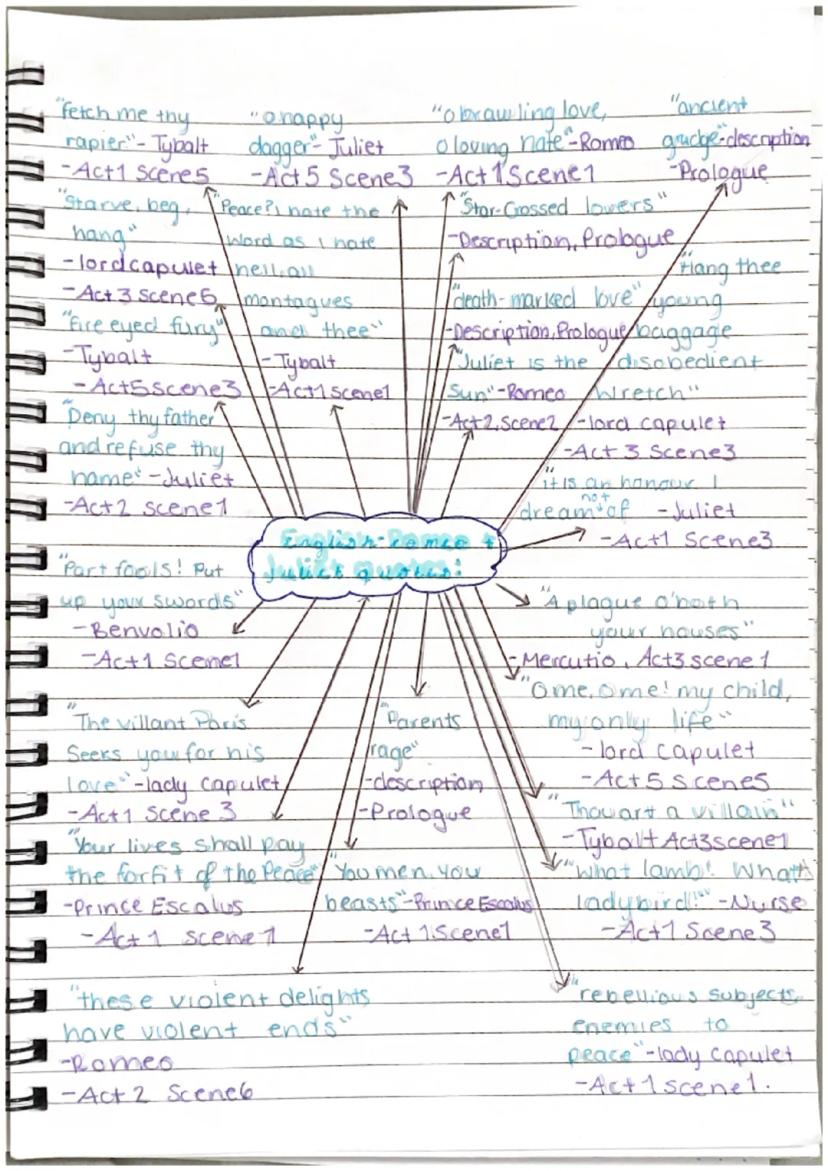 "fetch me thy
rapier" - Tybalt
- Act 1 Scene 5
"o happy
dagger" - Juliet
- Act 5 Scene 3
"o brawling love,
o loving hate" - Romeo
- Act 1 Scene 1
"ancient
grudge" - description
- Prologue
"Starve, beg,
hang"
- lord capulet
- Act 3 Scene 5
"Peace? I hate the
word as I hate
hell, all
montagues
and thee"
- Tybalt
- Act 1 scene 1
"Star-Crossed lovers"
- Description, Prologue
"death-marked love"
- Description, Prologue
"Hang thee
young
baggage
disobedient
wretch"
- lord capulet
- Act 3 Scene 3
"fire eyed fury"
- Tybalt
- Act 5 scene 3
"Juliet is the
Sun" - Romeo
- Act 2, Scene 2
"Deny thy father
and refuse thy
name" - Juliet
- Act 2 scene 1
"it is an honour I
dream not of - Juliet
- Act 1 Scene 3
English - Romeo +
Juliet quotes!
"Part fools! Put
up your swords"
- Benvolio
- Act 1 Scene 1
"A plague o' both
your houses"
- Mercutio, Act 3 scene 1
"The villant Paris
Seeks you for his
love" - lady capulet
- Act 1 Scene 3
"Parents
rage"
- description
- Prologue
"O me, O me! my child,
my only life"
- lord capulet
- Act 5 scene 5
"Thou art a villain"
- Tybalt Act 3 scene 1
"Your lives shall pay
the forfit of the Peace"
- Prince Escalus
- Act 1 scene 1
"You men, you
beasts" - Prince Escalus
- Act 1 Scene 1
"What lamb! What
ladybird!" - Nurse
- Act 1 Scene 3
"these violent delights
have violent ends"
- Romeo
- Act 2 Scene 6
"rebellious subjects,
enemies to
peace" - lady capulet
- Act 1 scene 1.